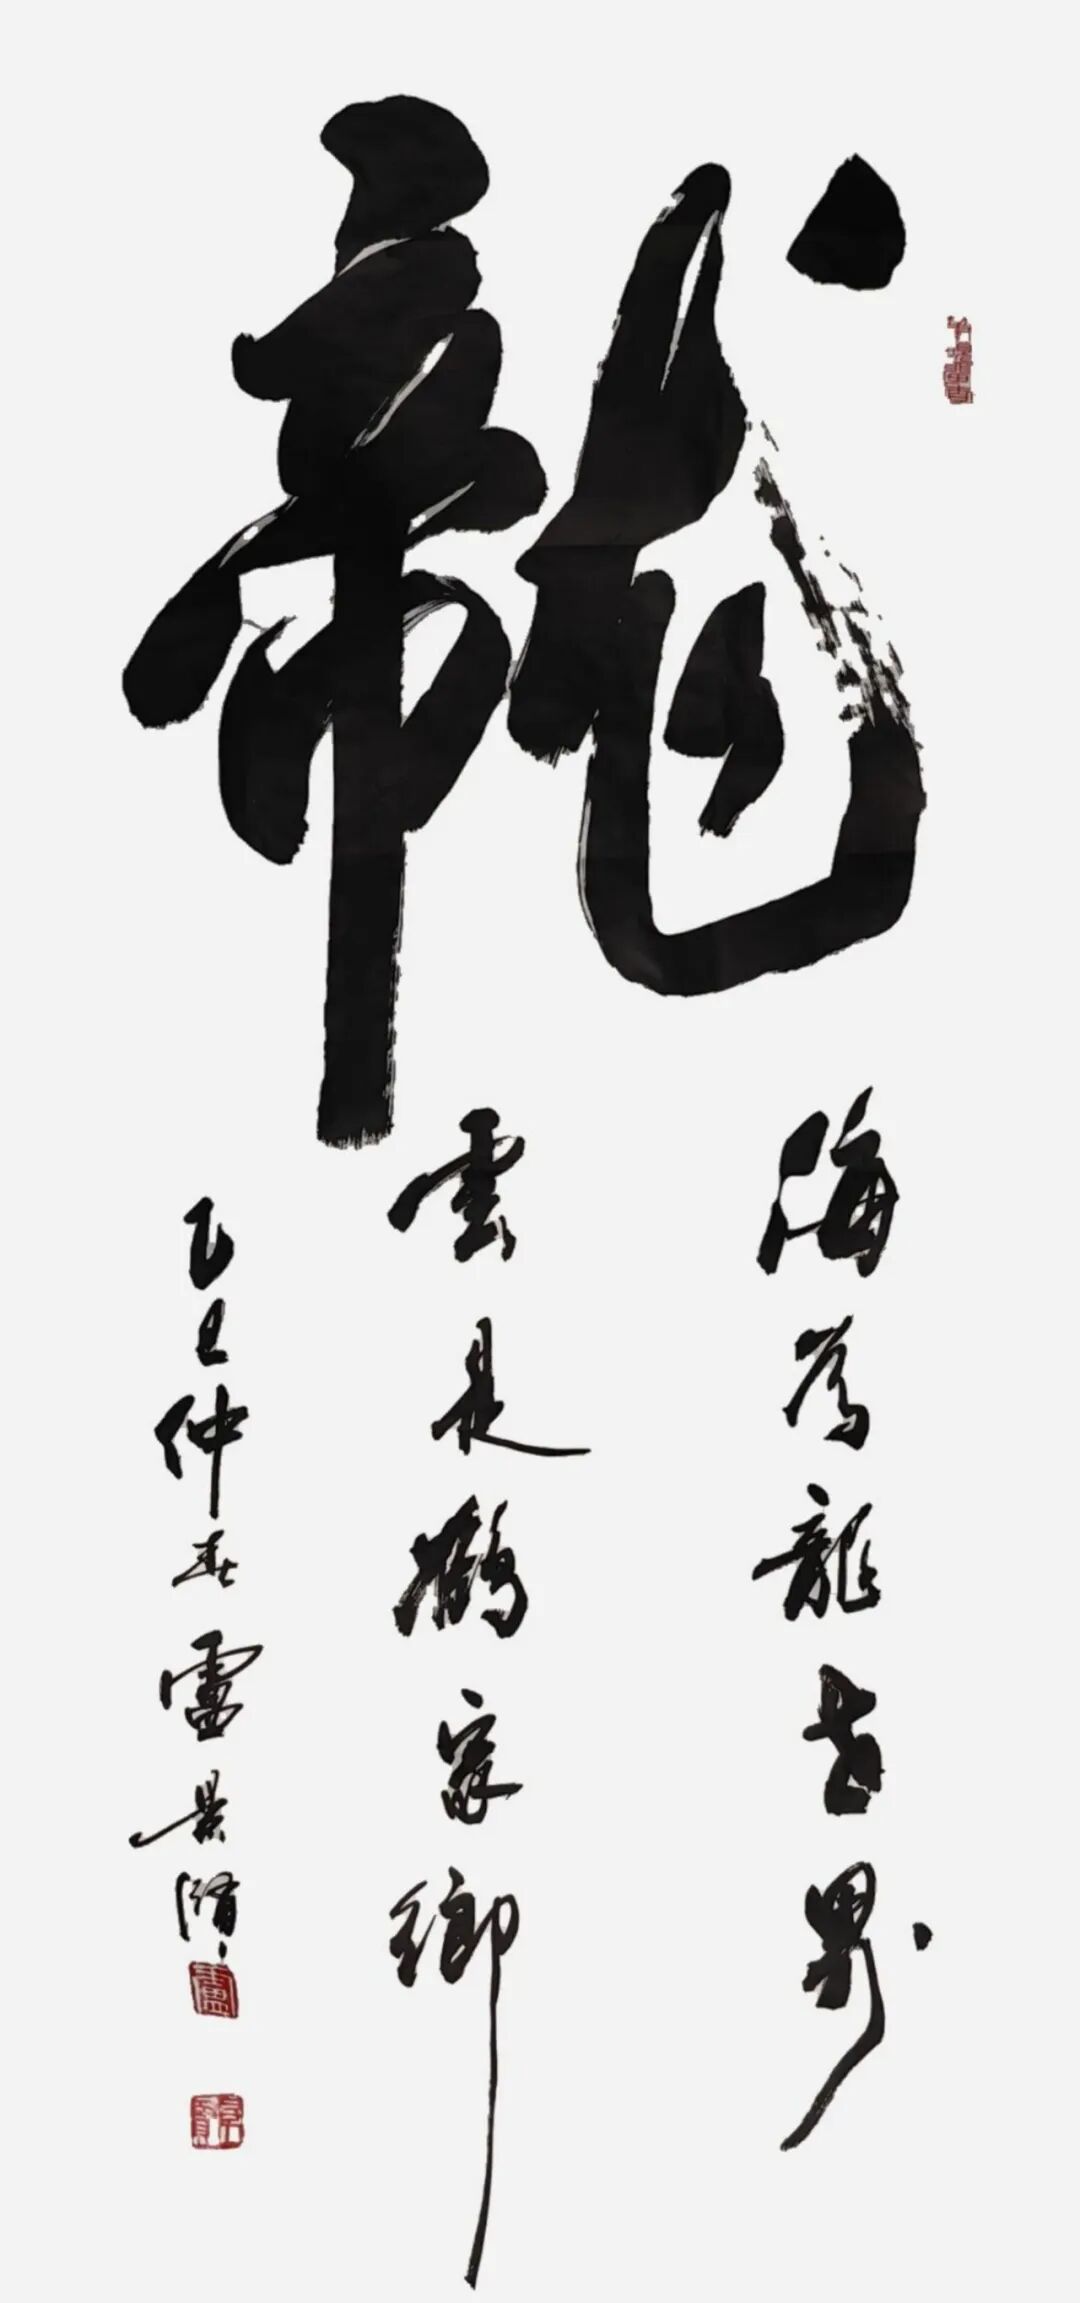 龍
海為龍世界
雲是鶴家鄉
乙巳仲春盧景
盧